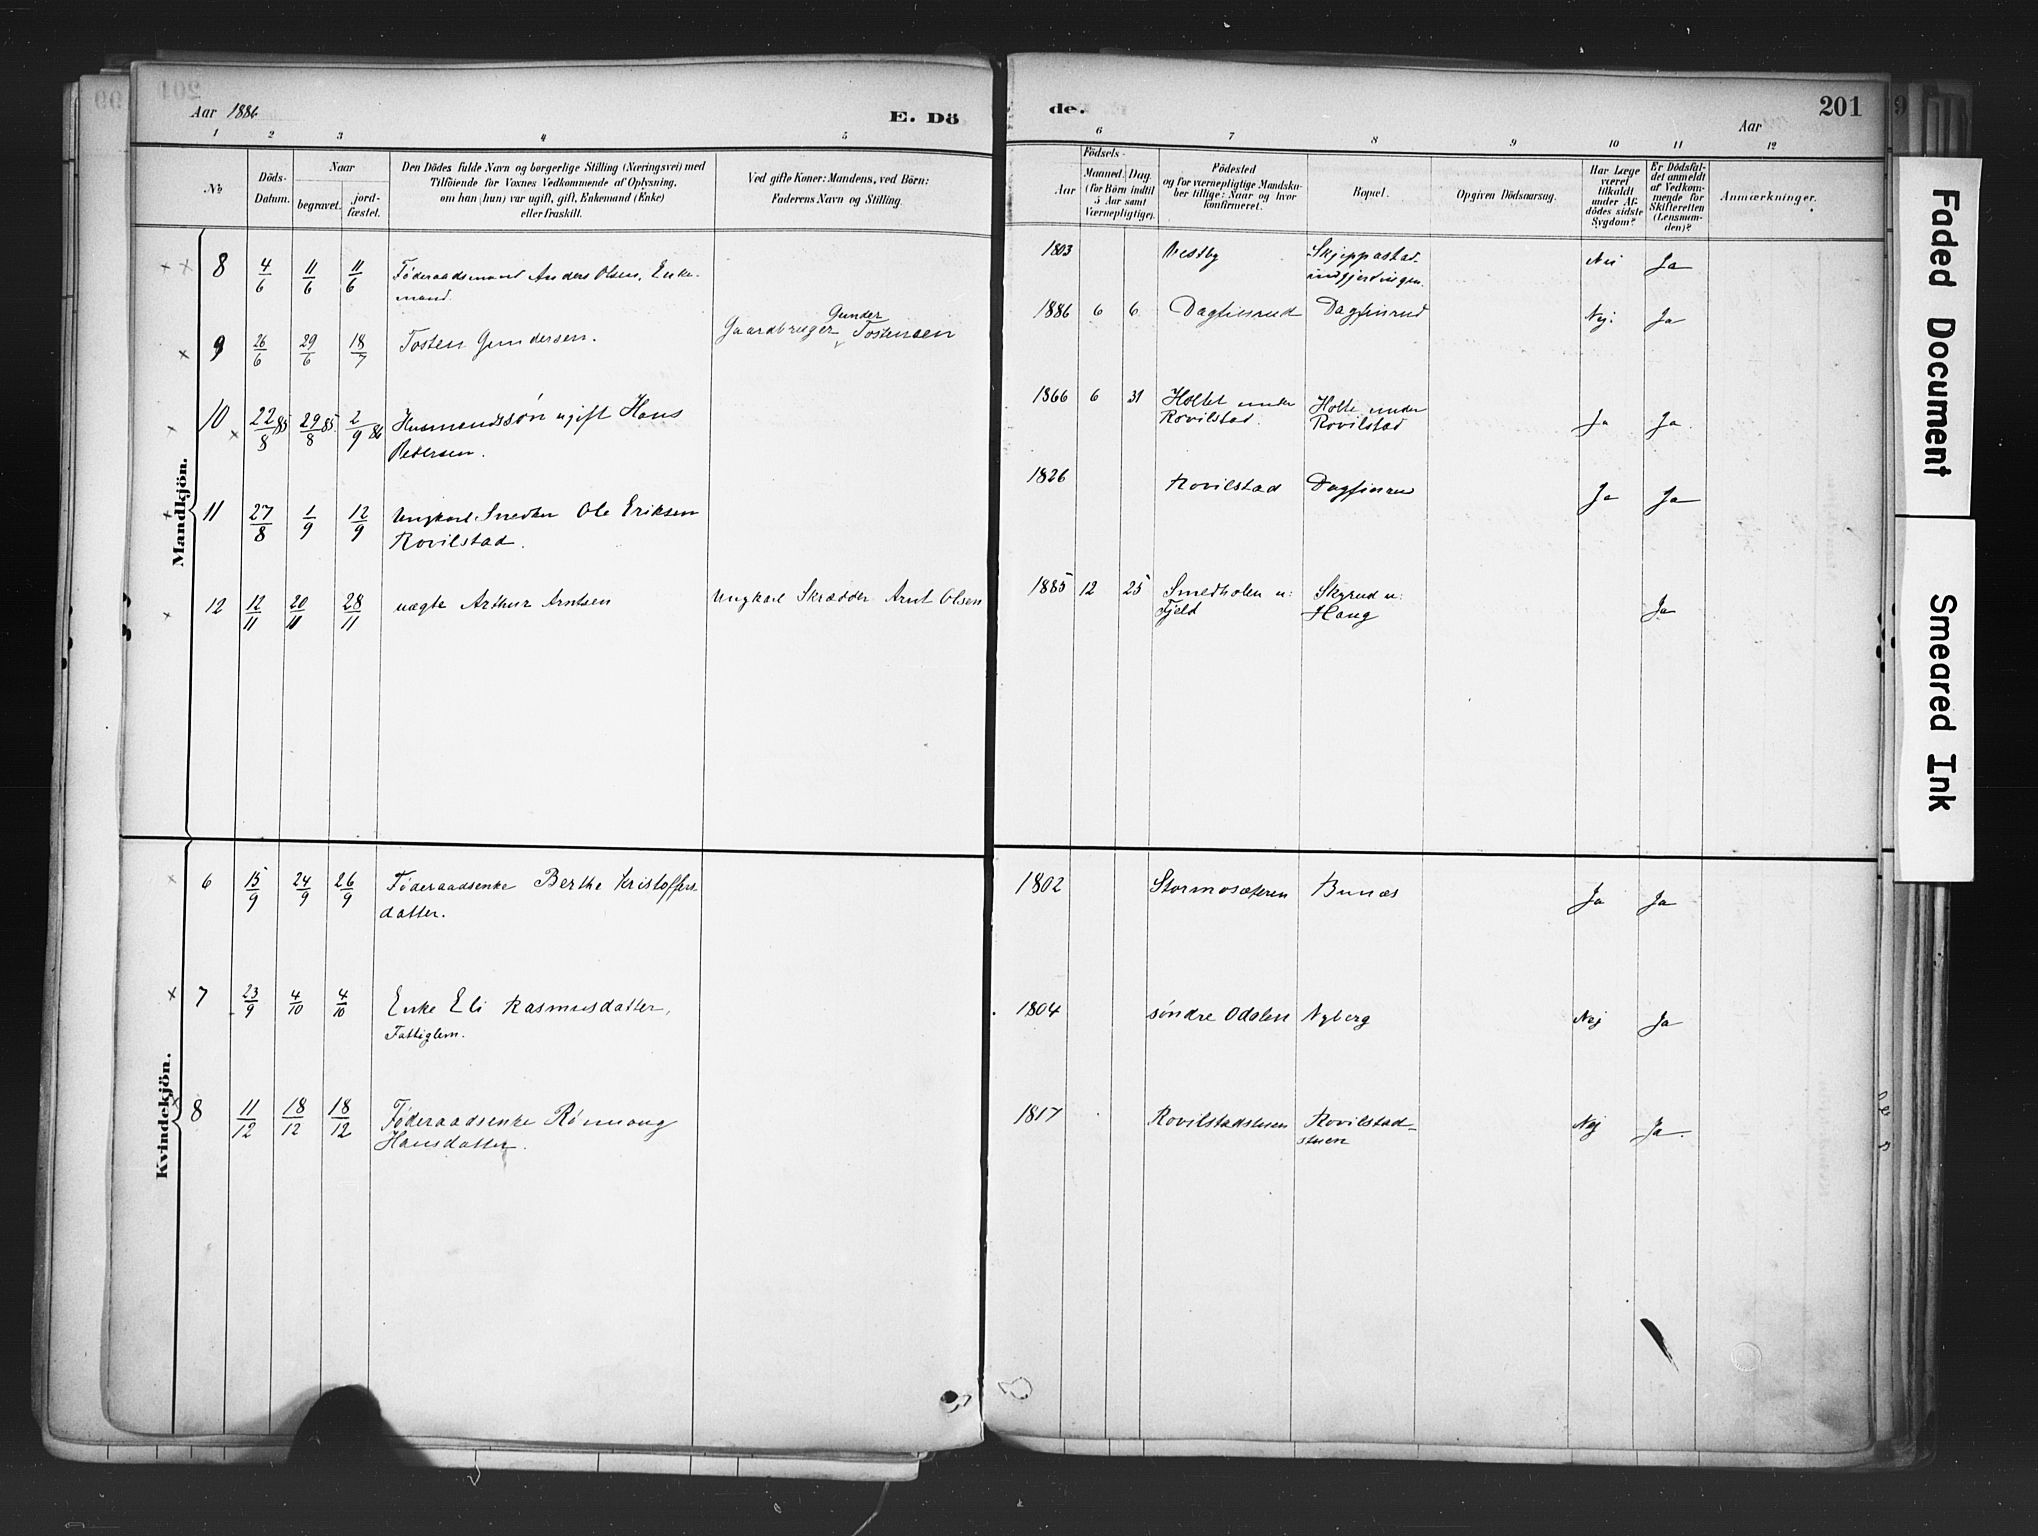 Aar 1886
E. Dö
de.
201
Aar
1 2 3 4 5 6 7 8 9 10 11 12
No
Döds-
Datum.
Naar
begravet.
jord-
fæstet.
Den Dödes fulde Navn og borgerlige Stilling (Næringsvei) med
Tilföiende for Voxnes Vedkommende af Oplysning,
om han (hun) var ugift, gift, Enkemand (Enke)
eller fraskilt.
Ved gifte Koner: Mandens, ved Börn:
Faderens Navn og Stilling.
Födsels-
Aar
Maaned. Dag.
(for Börn indtil
5 Aar samt
Værnepligtige).
Födested
og for værnepligtige Mandska-
ber tillige: Naar og hvor
konfirmeret.
Bopæl.
Opgiven Dödsaarsag.
Har Læge
været
tilkaldt
under Af-
dödes sidste
Sygdom?
Er Dödsfal-
det anmeldt
af Vedkom-
mende for
Skifteretten
(Lensman-
den)?
Anmærkninger.
Mandkjön.
8 4/6 11/6 11/6 Føderaadsmand Anders Olsen, Enke-
mand.
1803 Vestby Skjeppastad-
Nei Ja
9 26/6 29/6 18/7 Tosten Gundersen.
Gunder
Gaardbruger Tostensen
1886 6 6 Dagfinrud Dagfinrud Nej. Ja
10 22/8 85 29/8 85 2/9 86 Husmandssøn ugift Hans
Pedersen.
1866 6 31 Holtet under
Rovilstad.
Holte under
Rovilstad
Ja Ja.
11 27/8 1/9 12/9 Ungkarl Snedker Ole Eriksen
Rovilstad.
1826 Rovilstad Dagfinrud Ja Ja
12 12/11 20/11 28/11 uægte Arthur Arntsen Ungkarl Skrædder Arnt Olsen
1885 12 25 Smedholen u:
Fjeld
Skyrud u:
Haug
Ja
Kvindekjön.
6 15/9 24/9 26/9 Føderaadsenke Berthe Kristoffers-
datter.
1802 Stormosæteren Bunæs Ja Ja
7 23/9 4/10 4/10 Enke Eli Rasmusdatter,
Fattiglem.
1804 søndre Odalen Nyberg Nej Ja
8 11/12 18/12 18/12 Føderaadsenke Rønnaug
Hansdatter.
1817 Rovilstadstuen Rovilstad-
stuen
Nej Ja.
Faded Document
Smeared Ink